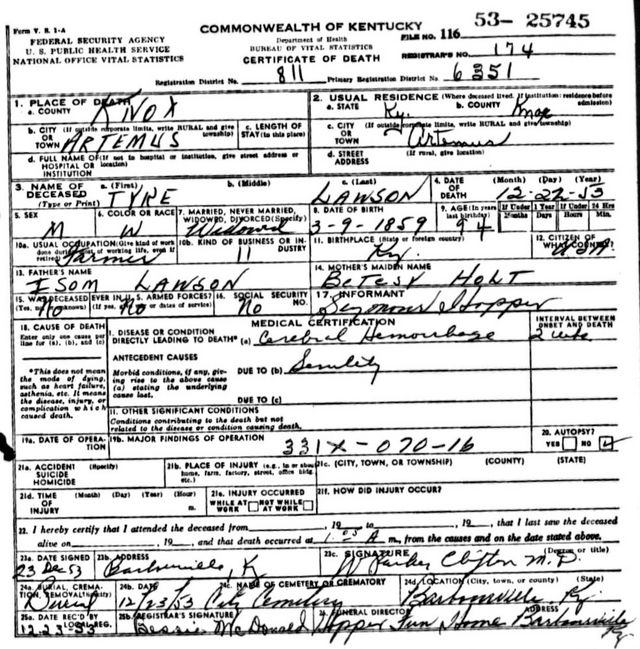 Form V. S. 1-A
COMMONWEALTH OF KENTUCKY
53- 25745
FEDERAL SECURITY AGENCY
U. S. PUBLIC HEALTH SERVICE
NATIONAL OFFICE VITAL STATISTICS
Department of Health
BUREAU OF VITAL STATISTICS
CERTIFICATE OF DEATH
FILE NO. 116
REGISTRAR'S NO. 174
Registration District No. 811 Primary Registration District No. 6351
1. PLACE OF DEATH
a. COUNTY KNOX
2. USUAL RESIDENCE (Where deceased lived. If institution: residence before admission)
a. STATE Ky. b. COUNTY Knox
b. CITY (If outside corporate limits, write RURAL and give township)
OR TOWN ARTEMUS
c. LENGTH OF STAY (in this place)
c. CITY (If outside corporate limits, write RURAL and give township)
OR TOWN Artemus
d. FULL NAME OF (If not in hospital or institution, give street address or location)
HOSPITAL OR INSTITUTION
d. STREET ADDRESS (If rural, give location)
3. NAME OF DECEASED (Type or Print)
a. (First) TYRE b. (Middle) c. (Last) LAWSON
4. DATE OF DEATH (Month) (Day) (Year) 12-22-53
5. SEX M
6. COLOR OR RACE W
7. MARRIED, NEVER MARRIED, WIDOWED, DIVORCED (Specify) Widowed
8. DATE OF BIRTH 3-9-1859
9. AGE (In years last birthday) 94
If Under 1 Year Months Days
If Under 24 Hrs Hours Min.
10a. USUAL OCCUPATION (Give kind of work done during most of working life, even if retired) Farmer
10b. KIND OF BUSINESS OR INDUSTRY 11
11. BIRTHPLACE (State or foreign country) Ky.
12. CITIZEN OF WHAT COUNTRY? USA
13. FATHER'S NAME ISOM LAWSON
14. MOTHER'S MAIDEN NAME BETESY HOLT
15. WAS DECEASED EVER IN U. S. ARMED FORCES? (Yes, no, or unknown) No (If yes, give war or dates of service) No
16. SOCIAL SECURITY NO. No
17. INFORMANT Seymour Hopper
18. CAUSE OF DEATH
Enter only one cause per line for (a), (b), and (c)
MEDICAL CERTIFICATION
INTERVAL BETWEEN ONSET AND DEATH
I. DISEASE OR CONDITION
DIRECTLY LEADING TO DEATH* (a) Cerebral Hemorrhage 2 wks
*This does not mean the mode of dying, such as heart failure, asthenia, etc. It means the disease, injury, or complication which caused death.
ANTECEDENT CAUSES
Morbid conditions, if any, giving rise to the above cause (a) stating the underlying cause last.
DUE TO (b) Senility
DUE TO (c)
II. OTHER SIGNIFICANT CONDITIONS
Conditions contributing to the death but not related to the disease or condition causing death.
19a. DATE OF OPERATION
19b. MAJOR FINDINGS OF OPERATION
331X-070-16
20. AUTOPSY?
YES NO
21a. ACCIDENT SUICIDE HOMICIDE (Specify)
21b. PLACE OF INJURY (e.g., in or about home, farm, factory, street, office bldg., etc.)
21c. (CITY, TOWN, OR TOWNSHIP) (COUNTY) (STATE)
21d. TIME OF INJURY (Month) (Day) (Year) (Hour) m.
21e. INJURY OCCURRED
WHILE AT WORK NOT WHILE AT WORK
21f. HOW DID INJURY OCCUR?
22. I hereby certify that I attended the deceased from , 19 to , 19 , that I last saw the deceased
alive on , 19 , and that death occurred at A m., from the causes and on the date stated above.
23a. DATE SIGNED 23 Dec 53
23b. ADDRESS Barbourville, K
23c. SIGNATURE (Degree or title) W Parker Clifton M.D.
24a. BURIAL, CREMATION, REMOVAL (Specify) Burial
24b. DATE 12/23/53
24c. NAME OF CEMETERY OR CREMATORY City Cemetery
24d LOCATION (City, town, or county) (State) Barbourville, Ky.
25a. DATE REC'D BY LOCAL REG. 12-23-53
25b. REGISTRAR'S SIGNATURE Bessie McDonald
25. FUNERAL DIRECTOR ADDRESS Hopper Fun Home Barbourville Ky.